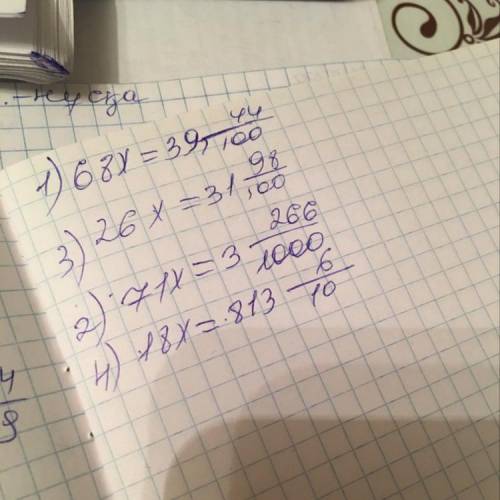 .-нұсқа
1) 68x = 39 44/100
3) 26x = 31 98/100
2) 71x = 3 266/1000
4) 18x = 813 6/10
4/9